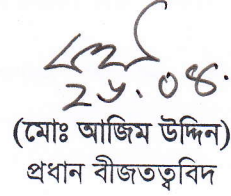 ২৮.০৪.
(মোঃ আজিম উদ্দিন)
প্রধান বীজতত্ববিদ